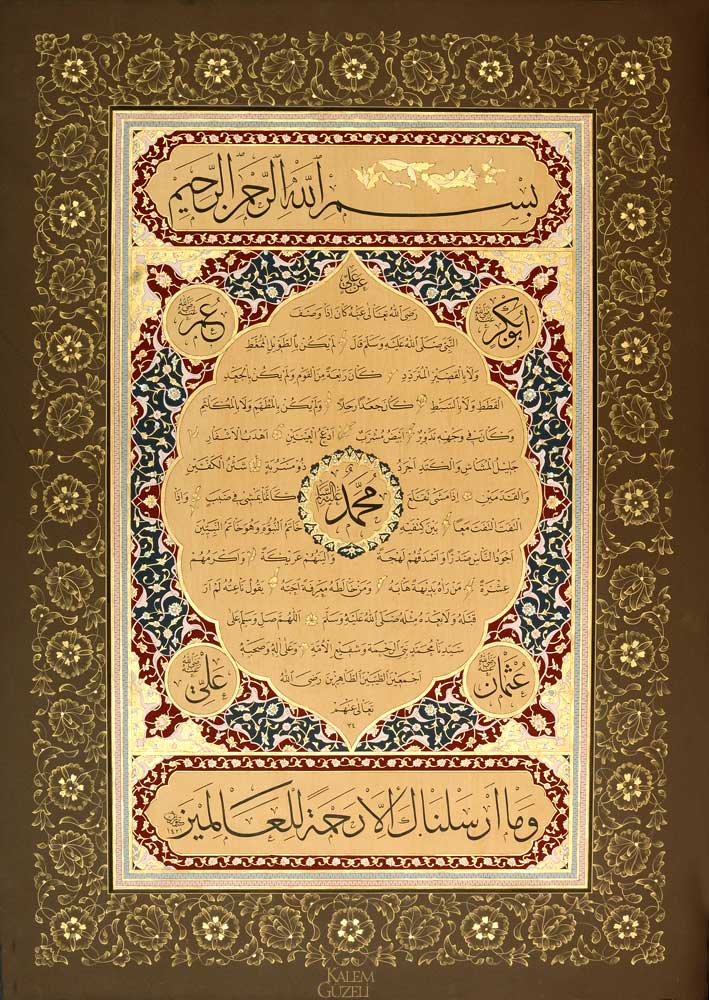 بسم الله الرحمن الرحيم
عن علي
ابوبكر رضي الله عنه
عمر رضي الله عنه
رضي الله تعالى عنه كان اذا وصف
النبي صلى الله عليه وسلم قال لم يكن بالطويل الممغط
ولا بالقصير المتردد كان ربعة من القوم ولم يكن بالجعد
القطط ولا بالسبط كان جعدا رجلا ولم يكن بالمطهم ولا بالمكلثم
وكان في وجهه تدوير ابيض مشرب ادعج العينين اهدب الاشفار
جليل المشاش والكتد اجرد ذو مسربة شثن الكفين
والقدمين اذا مشى تقلع كانما يمشي في صبب واذا
محمد عليه السلام
التفت التفت معا بين كتفيه خاتم النبوة وهو خاتم النبيين
اجود الناس صدرا واصدقهم لهجة والينهم عريكة واكرمهم
عشرة من راه بديهة هابه ومن خالطه معرفة احبه يقول ناعته لم ار
قبله ولا بعده مثله صلى الله عليه وسلم اللهم صل وسلم على
سيدنا محمد نبي الرحمة وشفيع الامة وعلى اله وصحبه
اجمعين الطيبين الطاهرين رضي الله
تعالى عنهم
٣٤
عثمان رضي الله عنه
علي رضي الله عنه
وما ارسلناك الا رحمة للعالمين
١٤٢١
KALEM
GÜZELİ